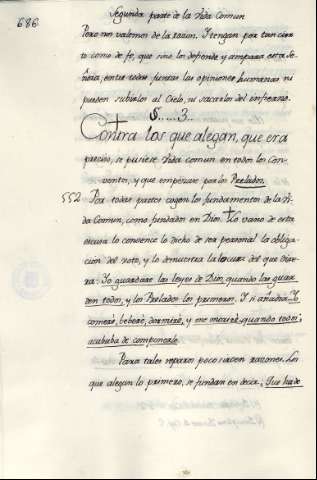 686
Segunda parte de la Vida Comun
Pero non valemos de la razon. Y tengan por tan cier
to como de fe, que sino los defiende y ampara esta Se-
ñora, entre todas juntas las opiniones humanas ni
pueden subirlos al Cielo, ni sacarlos del infierno.
§.....3...
Contra los que alegan, que era
preciso, se pusiese Vida comun en todos los Con-
ventos, y que empezase por los Prelados.
552 Por todas partes cogen los fundamentos de la Vi-
da Comun, como fundados en Dios. Lo vano de esta
escusa lo convence lo dicho de ser personal la obliga-
cion del voto, y lo demuestra la locura del que dixe-
ra: Yo guardaré las leyes de Dios, quando las guar-
den todos, y los Prelados los primeros. Y si añadiera: Yo
comeré, beberé, dormiré, y me moriré quando todos;
acababa de componerlo.
Para tales reparos poco sirven razones. Los
que alegan lo primero, se fundan en decir, Que ha de